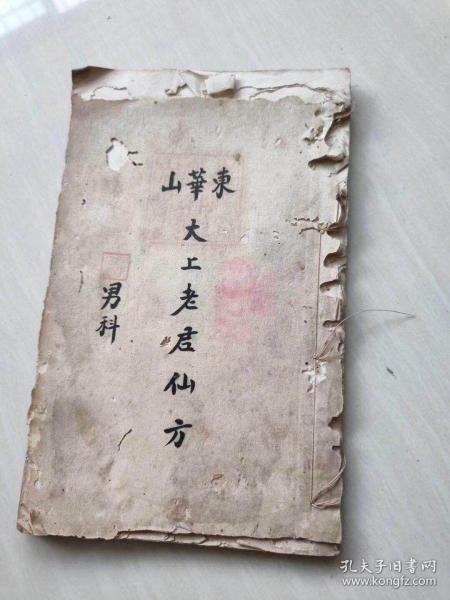 東華山
大上老君仙方
男科
孔夫子旧书网
www.kongfz.com